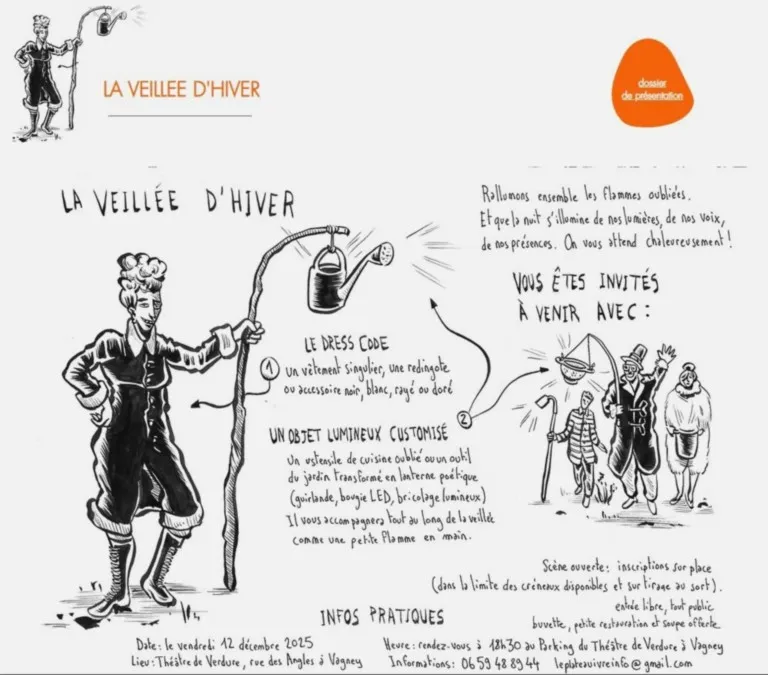 LA VEILLEE D'HIVER
dossier
de présentation
LA VEILLÉE D'HIVER
Rallumons ensemble les flammes oubliées.
Et que la nuit s'illumine de nos lumières, de nos voix,
de nos présences. On vous attend chaleureusement !
VOUS ÊTES INVITÉS
À VENIR AVEC :
LE DRESS CODE
1
un vêtement singulier, une redingote
ou accessoire noir, blanc, rayé ou doré
2
UN OBJET LUMINEUX CUSTOMISÉ
Un ustensile de cuisine oublié ou un outil
du jardin transformé en lanterne poétique
(guirlande, bougie LED, bricolage lumineux)
Il vous accompagnera tout au long de la veillée
comme une petite flamme en main.
Scène ouverte : inscriptions sur place
(dans la limite des créneaux disponibles et sur tirage au sort).
entrée libre, tout public
buvette, petite restauration et soupe offerte
INFOS PRATIQUES
Date : le vendredi 12 décembre 2025
Heure : rendez-vous à 18h30 au Parking du Théâtre de Verdure à Vagney
Lieu : Théâtre de Verdure, rue des Angles à Vagney
Informations : 06 59 48 89 44 leplateauivreinfo@gmail.com